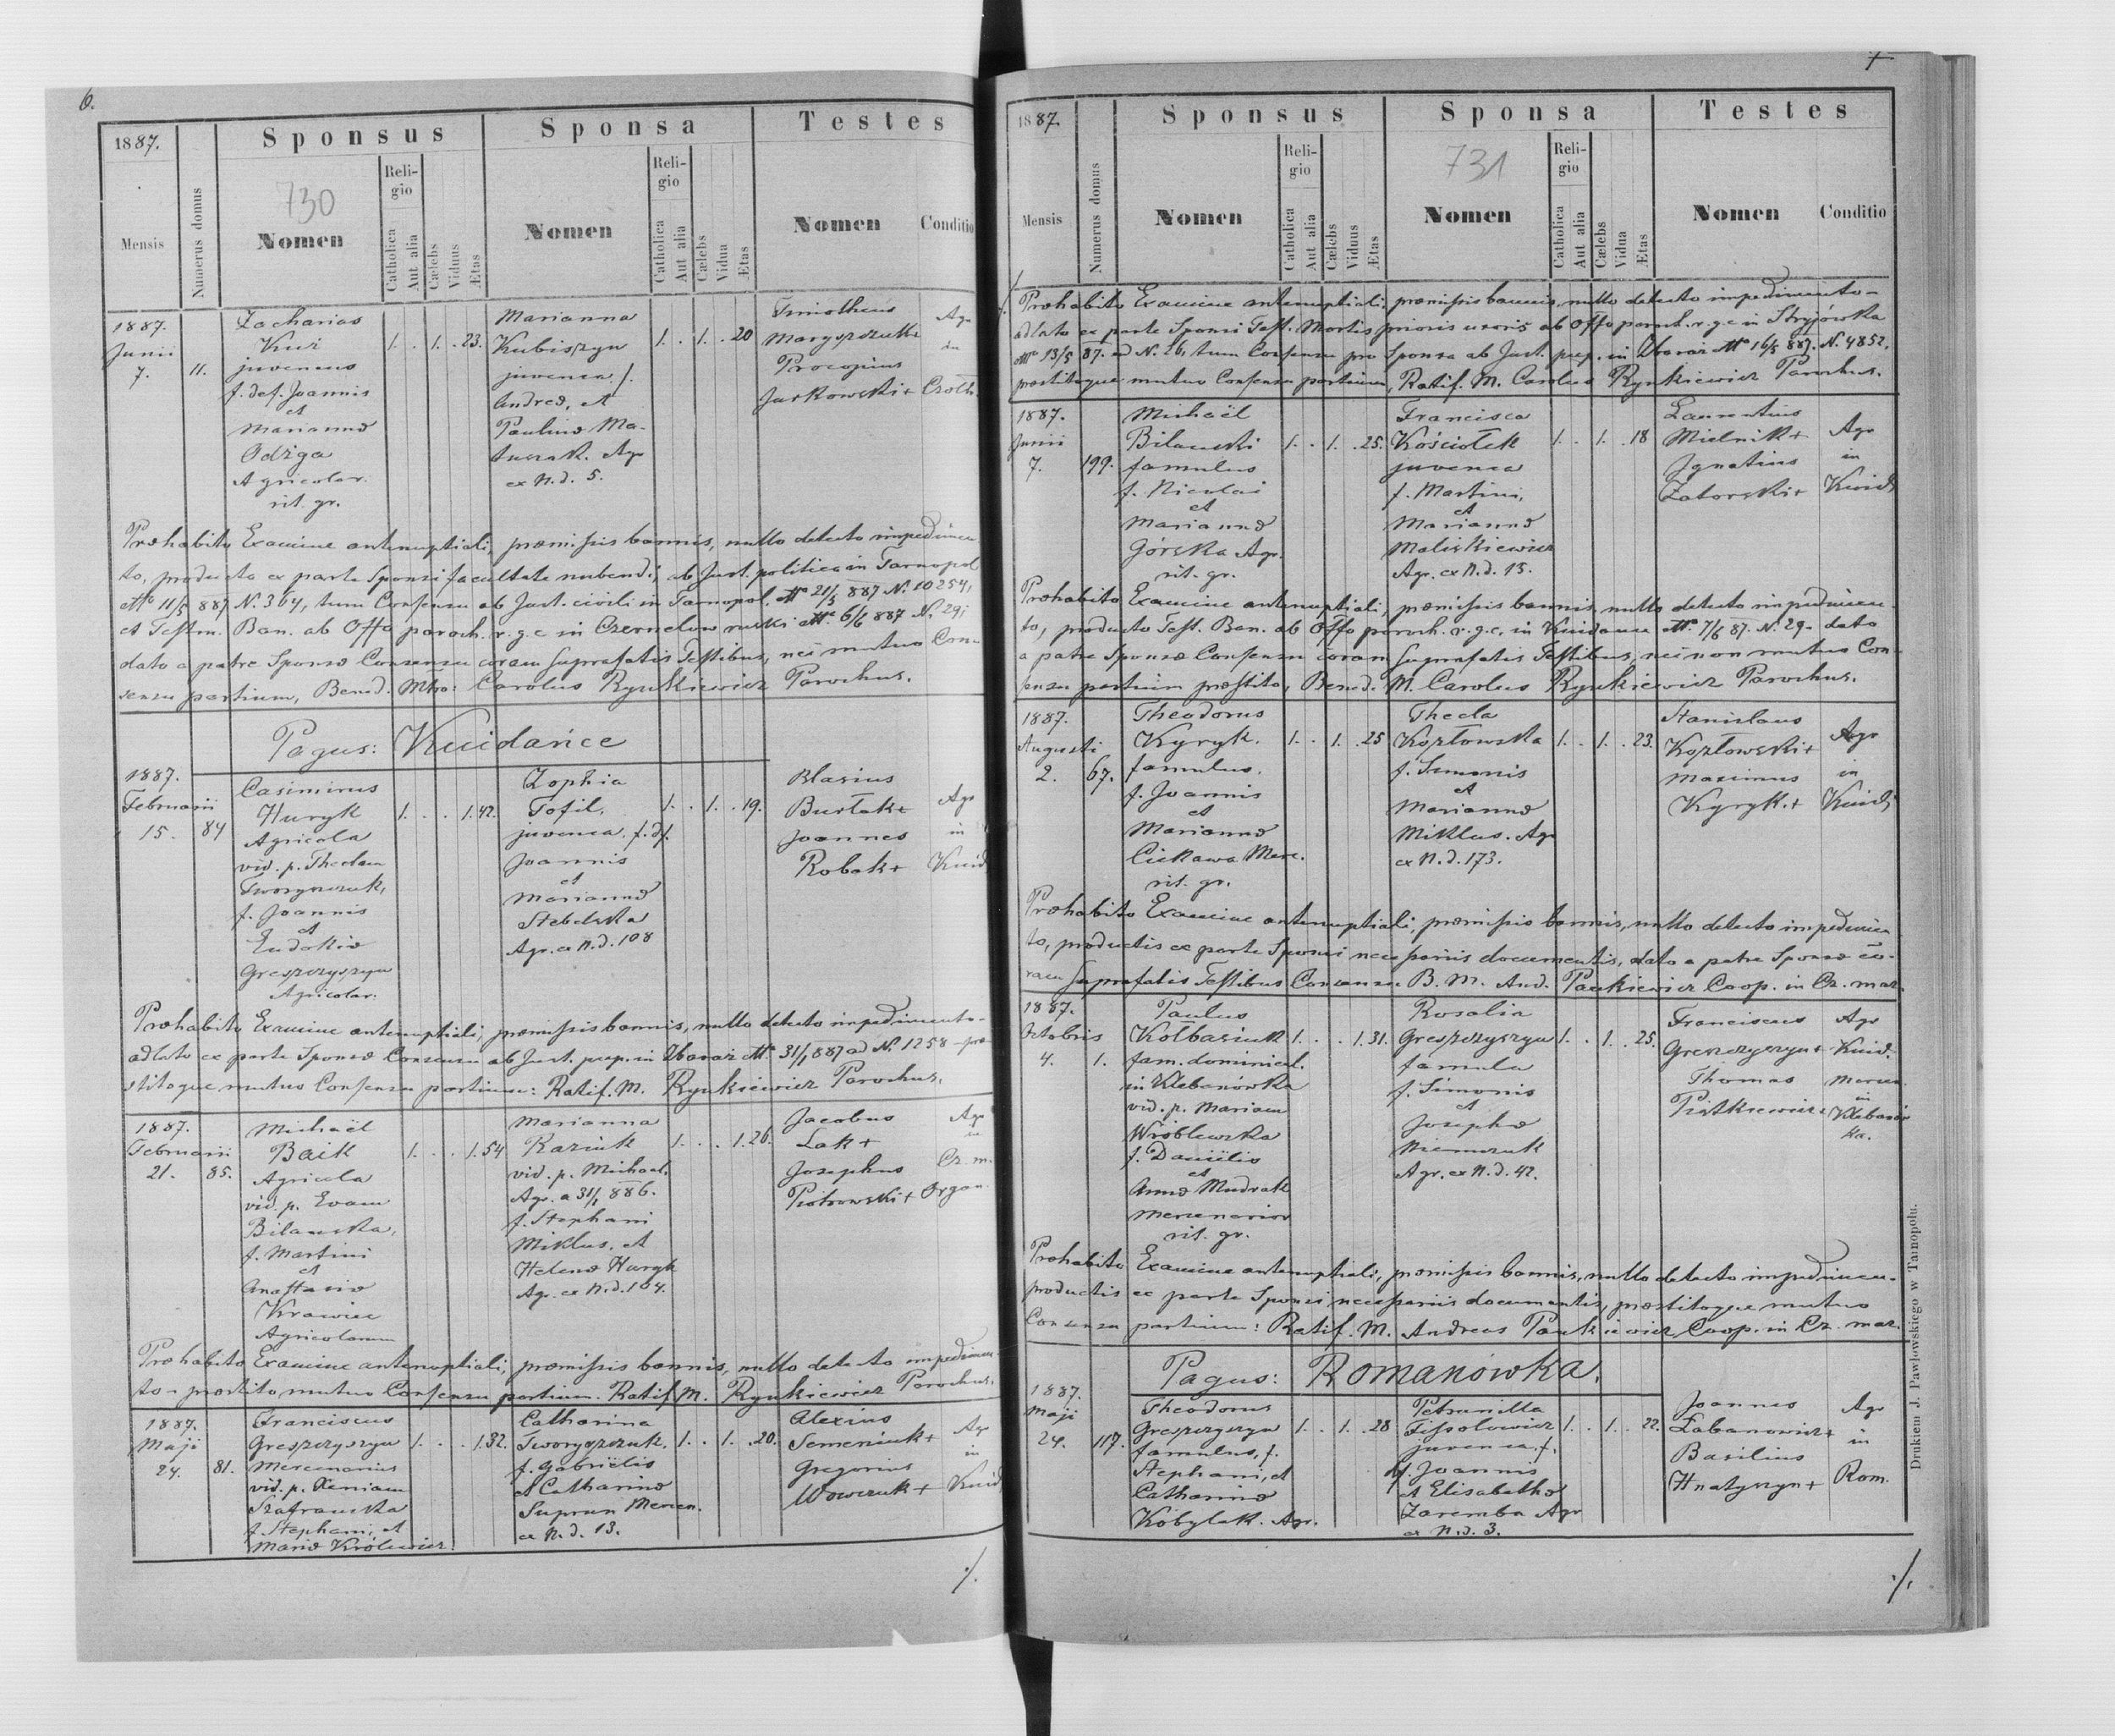 6.
1887.
Sponsus
Sponsa
Testes
730
Mensis
Numerus domus
Nomen
Religio
Catholica
Aut alia
Cælebs
Viduus
Ætas
Nomen
Religio
Catholica
Aut alia
Cælebs
Vidua
Ætas
Nomen
Conditio
1887.
Junii
7.
11.
Zacharias
Kuź
juvencus
f. def. Joannis
et
Mariannæ
Odżga
Agricolar.
rit. gr.
1. . 1. . 23.
Marianna
Kubiszyn
juvenca f.
Andreæ, et
Paulinæ Ma-
tuszak. Agr
ex N.d. 5.
1. . 1. . 20
Timotheus
Maryszczuk+
Procopius
Jarkowski+
Agr
in
Czoth.
Præhabito Examine antenuptiali, præmissis bannis, nullo detecto impedimen
to, producta ex parte Sponsi facultate nubendi, ab Just. politica in Tarnopol
dtto 11/5 887 N. 364, tum Consensu ab Just. civili in Tarnopol. dtto 21/5 887 N. 10254,
et Testm. Ban. ab Offo paroch. r.g.c. in Czernelow ruski dtto 6/6 887 N. 29;
dato a patre Sponsæ Consensu coram suprafatis Testibus, nei mutuo Con-
sensu partium, Bened. Mtro: Carolus Rynkiewicz Parochus.
Pagus: Kuidańce
1887.
Februarii
15.
84
Casimirus
Huryk
Agricola
vid. p. Theclam
Tworyszczuk,
f. Joannis
et
Eudokiæ
Greszczyszyn
Agricolar:
1. . . 1. 42.
Zophia
Tofil,
juvenca. f. d/.
Joannis
et
Mariannæ
Stebelska
Agr. ex N.d. 108
1. . 1. . 19.
Blasius
Burłak+
Joannes
Robak+
Agr
in
Kuid
Præhabito Examine antenuptiali, præmissis bannis, nullo detecto impedimento-
adlato ex parte Sponsæ Consensu ab Just. pup. in Zbaraż dtto 31/1 887 ad N. 1258 - præ
stitoque mutuo Consensu partium: Ratif. M. Rynkiewicz Parochus.
1887.
Februarii
21.
85.
Michaël
Baik
Agricola
vid. p. Evam
Bilawska,
f. Martini
et
Anastasiæ
Krawiec
Agricolarum
1. . . 1. 54
Marianna
Kaziuk
vid. p. Michael.
Agr. a 31/1 886.
f. Stephani
Miklus, et
Helenæ Huryk
Agr. ex N.d. 104.
1. . . 1. 26.
Jacobus
Lak+
Josephus
Piotrowski+
Agr
in
Cz. m.
Organ.
Præhabito Examine antenuptiali, præmissis bannis, nullo detecto impedimen-
to - præstito mutuo Consensu partium. Ratif. M. Rynkiewicz Parochus.
1887.
Maji
24.
81.
Franciscus
Greszczyszyn
Mercenarius
vid. p. Xeniam
Szafrańska
f. Stephani, et
Mariæ Królewicz.
1. . . 1. 32.
Catharina
Tworyszczuk,
f. Gabriëlis
et Catharinæ
Suprun Mercen.
ex N.d. 13.
1. . 1. . 20.
Alexius
Semeniuk+
Gregorius
Wowczuk+
Agr
in
Kuid
./.
7
1887.
Sponsus
Sponsa
Testes
731
Mensis
Numerus domus
Nomen
Religio
Catholica
Aut alia
Cælebs
Viduus
Ætas
Nomen
Religio
Catholica
Aut alia
Cælebs
Vidua
Ætas
Nomen
Conditio
Præhabito Examine antenuptiali, præmissis bannis, nullo detecto impedimento-
adlato ex parte Sponsi Test. Mortis prioris uxoris ab Offo paroch. r.g.c in Stryjówka
dtto 13/5 87. ad N. 26, tum Consensu pro Sponsa ab Just. pup. in Zbaraż dtto 16/5 887. N. 4852,
præstitoque mutuo Consensu partium, Ratif. M. Carolus Rynkiewicz Parochus.
1887.
Junii
7.
199.
Michaël
Bilawski
famulus
f. Nicolai
et
Mariannæ
Górska Agr.
rit. gr.
1. . 1. . 25.
Francisca
Kościołek
juvenca
f. Martini,
et
Mariannæ
Maliskiewicz
Agr. ex N.d. 15.
1. . 1. . 18
Laurentius
Mielnik+
Ignatius
Zatorski+
Agr
in
Kuid,
Præhabito Examine antenuptiali, præmissis bannis, nullo detecto impedimen-
to, producto Test. Ban. ab Offo paroch. r.g.c. in Kuidance dtto 7/6 87. N. 29- dato
a patre Sponsæ Consensu coram suprafatis Testibus, nei non mutuo Con-
sensu partium præstito, Bened. M. Carolus Rynkiewicz Parochus.
1887.
Augusti
2.
67.
Theodorus
Kyryk.
famulus.
f. Joannis
et
Mariannæ
Ciekawa Merc.
rit. gr.
1. . 1. . 25
Thecla
Kozłowska
f. Simonis
et
Mariannæ
Miklus. Agr
ex N.d. 173.
1. . 1. . 23.
Stanislaus
Kozłowski+
Maximus
Kyryk.+
Agr
in
Kuid,
Præhabito Examine antenuptiali, præmissis bannis, nullo detecto impedimen
to, productis ex parte Sponsi necessariis documentis, dato a patre Sponsæ co-
ram suprafatis Testibus Consensu B. M. And. Pankiewicz Coop. in Cz. maz.
1887.
Octobris
4.
1.
Paulus
Kolbasiuk
fam. dominical.
in Klebanówka
vid. p. Mariam
Wróblewska
f. Daniëlis
et
Annæ Mudrak
mercenarior
rit. gr.
1. . . 1. 31.
Rosalia
Greszczyszyn
famula
f. Simonis
et
Josephæ
Niemczuk
Agr. ex N.d. 42.
1. . 1. . 25.
Franciscus
Greszczyszyn+
Thomas
Piątkiewicz+
Agr
Kuid.
Mercen.
in
Klebanów
ka.
Præhabito Examine antenuptiali, præmissis bannis, nullo detecto impedimen-
productis ex parte Sponsi necessariis documentis, præstitoque mutuo
Consensu partium: Ratif. M. Andreas Pankiewicz Coop. in Cz. maz.
Pagus: Romanówka.
1887.
Maji
24.
117.
Theodorus
Greszczyszyn
famulus, f.
Stephani, et
Catharinæ
Kobylak. Agr.
1. . 1. . 28
Petrunilla
Fissolowicz
juvenca. f.
Joannis
et Elisabethæ
Zaremba Agr
ex N.d. 3.
1. . 1. . 22.
Joannes
Labanowicz+
Basilius
Hnatyszyn+
Agr
in
Rom.
./.
Drukiem J. Pawłowskiego w Tarnopolu.